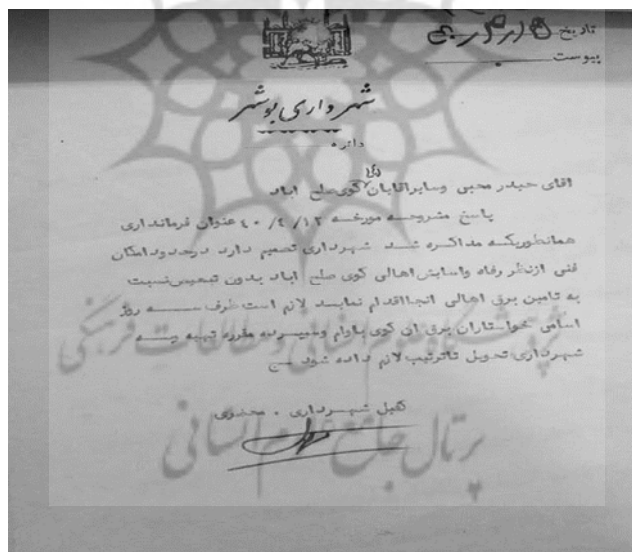 تاریخ
پیوست
شهرداری بوشهر
دائره
اقای حیدر محبی وسایراقایان کوی صلح اباد
پاسخ مشروحه مورخه ۴۰/۴/۱۲ عنوان فرمانداری
همانطوریکه مذاکره شد شهرداری تصمیم دارد درحدودامکان
فنی ازنظر رفاه واسایش اهالی کوی صلح اباد بدون تبعیض نسبت
به تامین برق اهالی انجااقدام نماید لازم است ظرف سه روز
اسامی خواستاران برق ان کوی باوام وسپرده مقرره تهیه وبه
شهرداری تحویل تاترتیب لازم داده شود
کفیل شهرداری .
پژوهشگاه علوم انسانی و مطالعات فرهنگی
پرتال جامع علوم انسانی